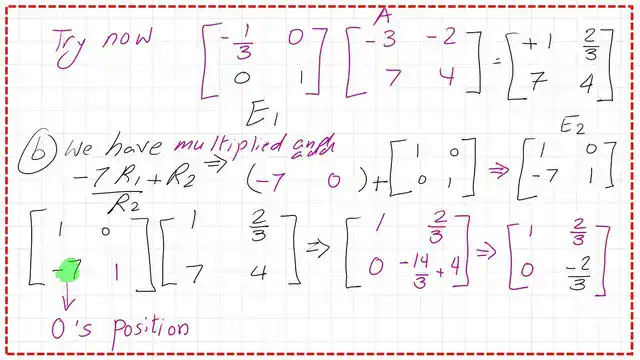 A
Try now [-1/3 0; 0 1] [-3 -2; 7 4] = [+1 2/3; 7 4]
E1
E2
(b) We have multiplied and add
-7R1+R2/R2 ⇒ (-7 0) + [1 0; 0 1] ⇒ [1 0; -7 1]
[1 0; -7 1] [1 2/3; 7 4] ⇒ [1 2/3; 0 -14/3+4] ⇒ [1 2/3; 0 -2/3]
0's position